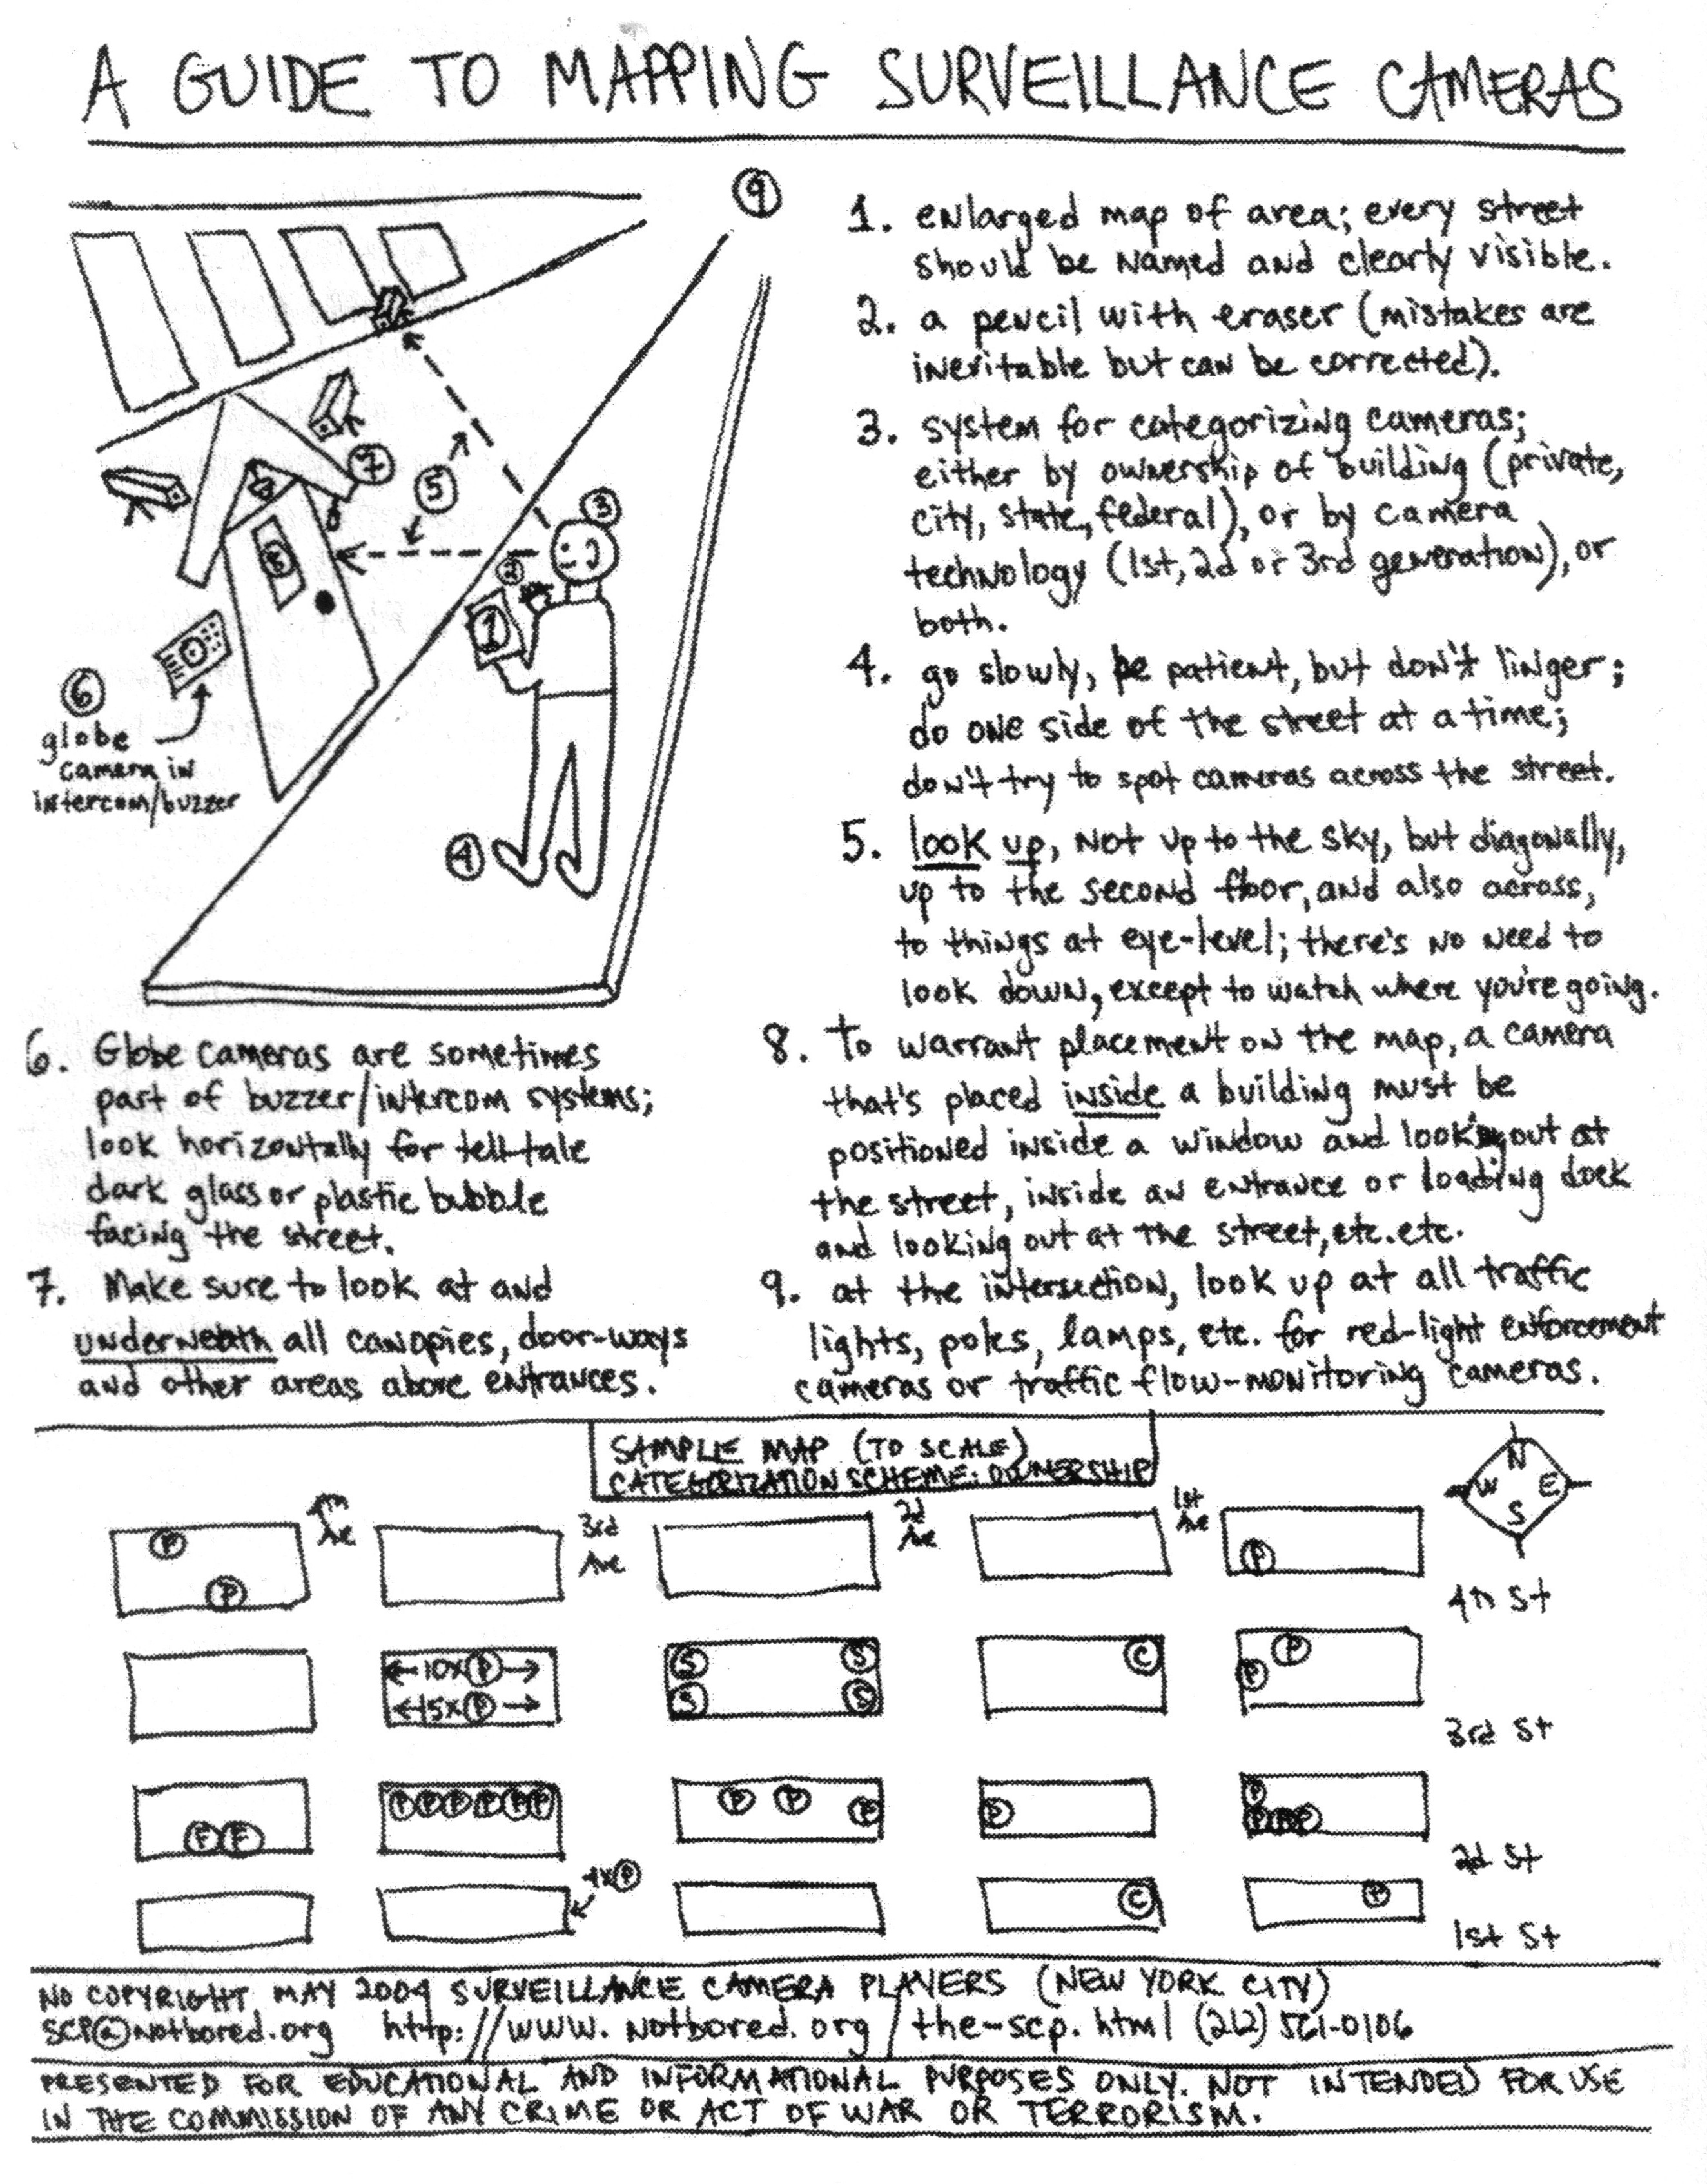 A GUIDE TO MAPPING SURVEILLANCE CAMERAS
9
7
5
3
2
1
8
6
globe
camera in
intercom/buzzer
4
1. enlarged map of area; every street
should be named and clearly visible.
2. a pencil with eraser (mistakes are
inevitable but can be corrected).
3. system for categorizing cameras;
either by ownership of building (private,
city, state, federal), or by camera
technology (1st, 2d or 3rd generation), or
both.
4. go slowly, be patient, but don't linger;
do one side of the street at a time;
don't try to spot cameras across the street.
5. look up, not up to the sky, but diagonally,
up to the second floor, and also across,
to things at eye-level; there's no need to
look down, except to watch where you're going.
6. Globe cameras are sometimes
part of buzzer/intercom systems;
look horizontally for tell-tale
dark glass or plastic bubble
facing the street.
7. Make sure to look at and
underneath all canopies, door-ways
and other areas above entrances.
8. To warrant placement on the map, a camera
that's placed inside a building must be
positioned inside a window and looking out at
the street, inside an entrance or loading dock
and looking out at the street, etc. etc.
9. at the intersection, look up at all traffic
lights, poles, lamps, etc. for red-light enforcement
cameras or traffic flow-monitoring cameras.
SAMPLE MAP (TO SCALE)
CATEGORIZATION SCHEME: OWNERSHIP
N
W E
S
Ave
3rd Ave
2d Ave
1st Ave
P
P
P
4th St
10x P
15x P
S S
S S
C
P
P
3rd St
F F
P P P P P P
P P P
P
P
P P P
2d St
4x P
C
P
1st St
NO COPYRIGHT MAY 2004 SURVEILLANCE CAMERA PLAYERS (NEW YORK CITY)
SCP@notbored.org http://www.notbored.org/the-scp.html (212) 561-0106
PRESENTED FOR EDUCATIONAL AND INFORMATIONAL PURPOSES ONLY. NOT INTENDED FOR USE
IN THE COMMISSION OF ANY CRIME OR ACT OF WAR OR TERRORISM.